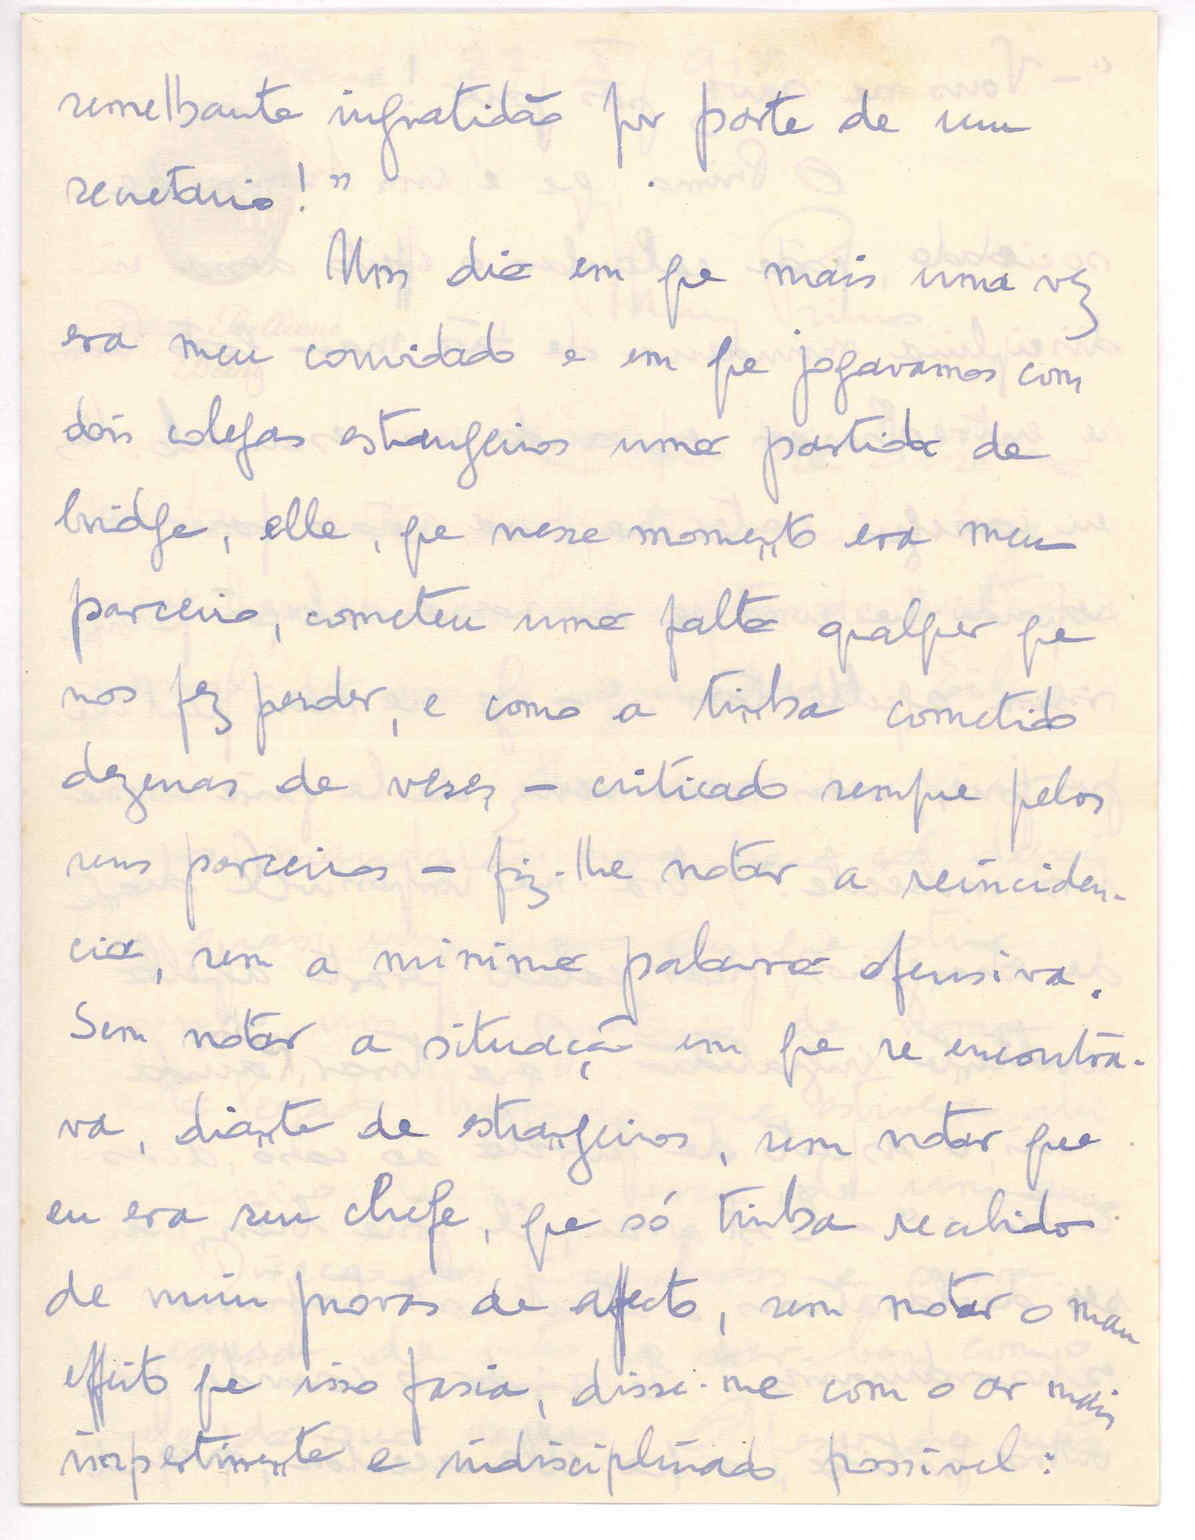 semelhante ingratidão por parte de um
secretario!"
Um dia em que mais uma vez
era meu convidado e em que jogavamos com
dois colegas estrangeiros uma partida de
bridge, elle, que nesse momento era meu
parceiro, cometeu uma falta qualquer que
nos fez perder, e como a tinha cometido
dezenas de veses – criticado sempre pelos
seus parceiros – fiz-lhe notar a reinciden-
cia, sem a minima palavra ofensiva.
Sem notar a situação em que se encontra-
va, diante de estrangeiros, sem notar que
eu era seu chefe, que só tinha recebido
de mim provas de affecto, sem notar o mau
effeito que isso fasia, disse-me com o ar mais
impertinente e indisciplinado possivel: